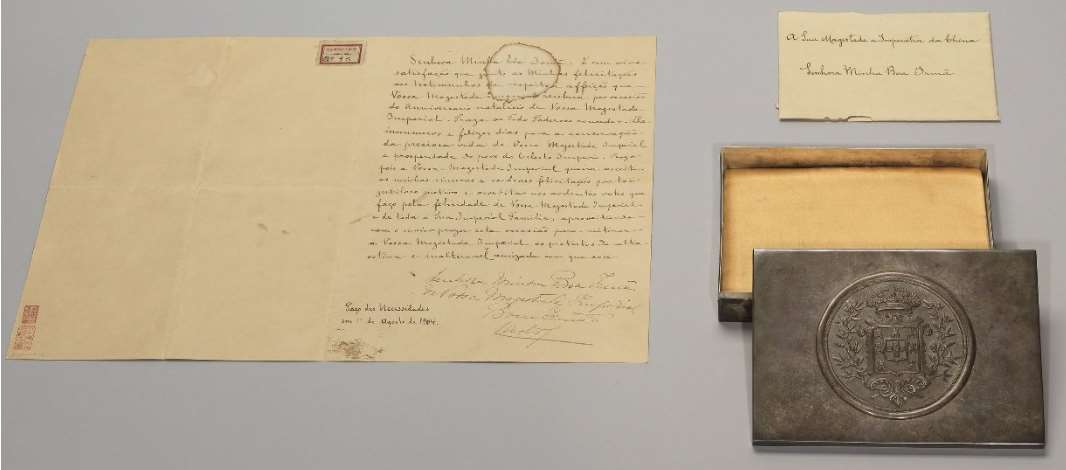 Senhora Minha Boa Irmã. É com viva
satisfação que junto as Minhas felicitações
aos testimunhos de respeito e affeição que
Vossa Magestade Imperial receberá por occasião
do Anniversario natalicio de Vossa Magestade
Imperial. Praza ao Todo Poderoso conceder-lhe
innumeros e felizes dias para a conservação
da preciosa vida de Vossa Magestade Imperial
e prosperidade do povo do Celeste Imperio. Peço
pois a Vossa Magestade Imperial queira acceitar
as minhas sinceras e cordeaes felicitações por tão
jubiloso motivo e acreditar nos ardentes votos que
faço pela felicidade de Vossa Magestade Imperial
e de toda a Sua Imperial Familia, aproveitando
com o maior prazer esta occasião para reiterar
a Vossa Magestade Imperial os protestos da alta
estima e inalteravel amizade com que sou
Senhora Minha Boa Irmã
de Vossa Magestade Imperial
Bom Irmão
Carlos
Paço das Necessidades
em 1º de Agosto de 1904.
A Sua Magestade a Imperatriz da China
Senhora Minha Boa Irmã